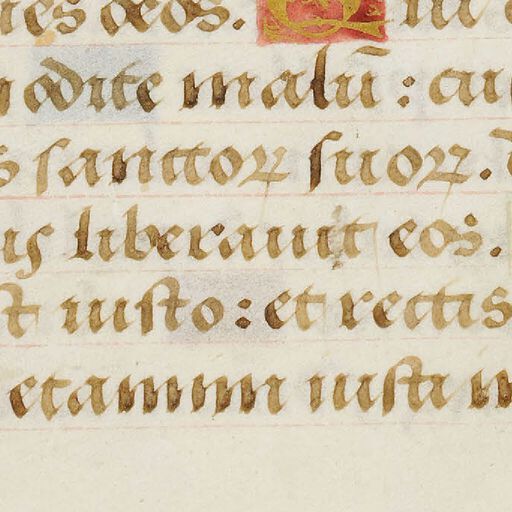 nes oēos. Qui
odite malū : cu
s sanctoꝝ suoꝝ.
is liberauit eos.
t iusto : et rectis
etamini iusti